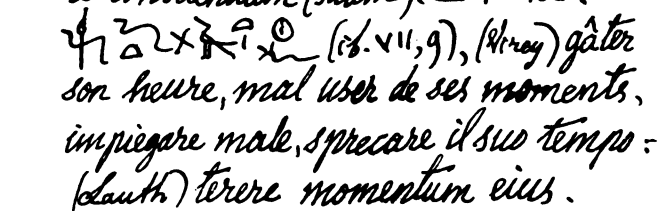 (ib. VII, 9), (Virey) gâter
son heure, mal user de ses moments,
impiegare male, sprecare il suo tempo:
(Lauth) terere momentum eius.